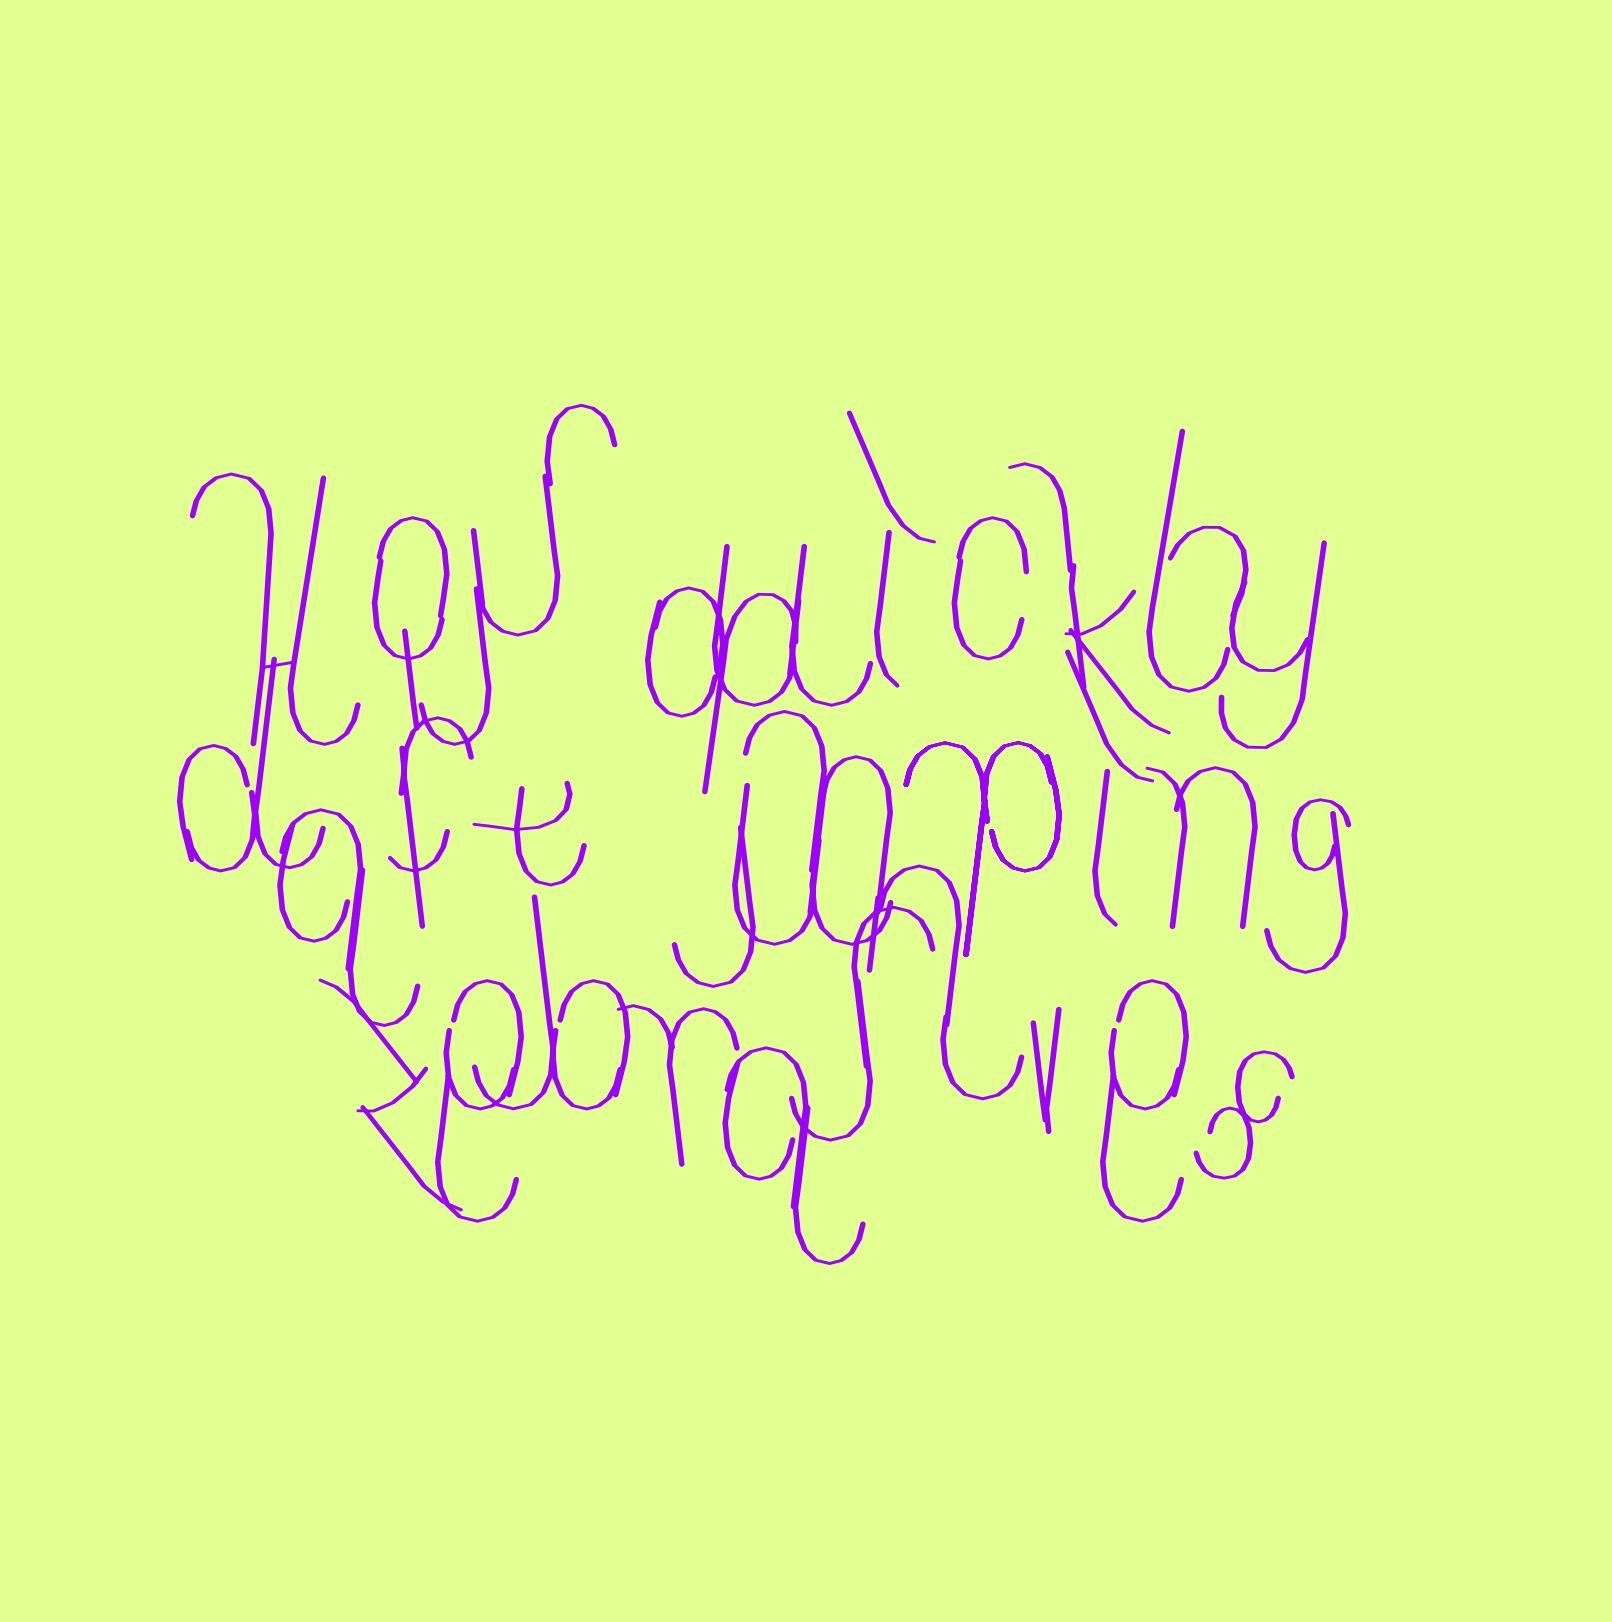 How quickly
daft jumping
zebras vex